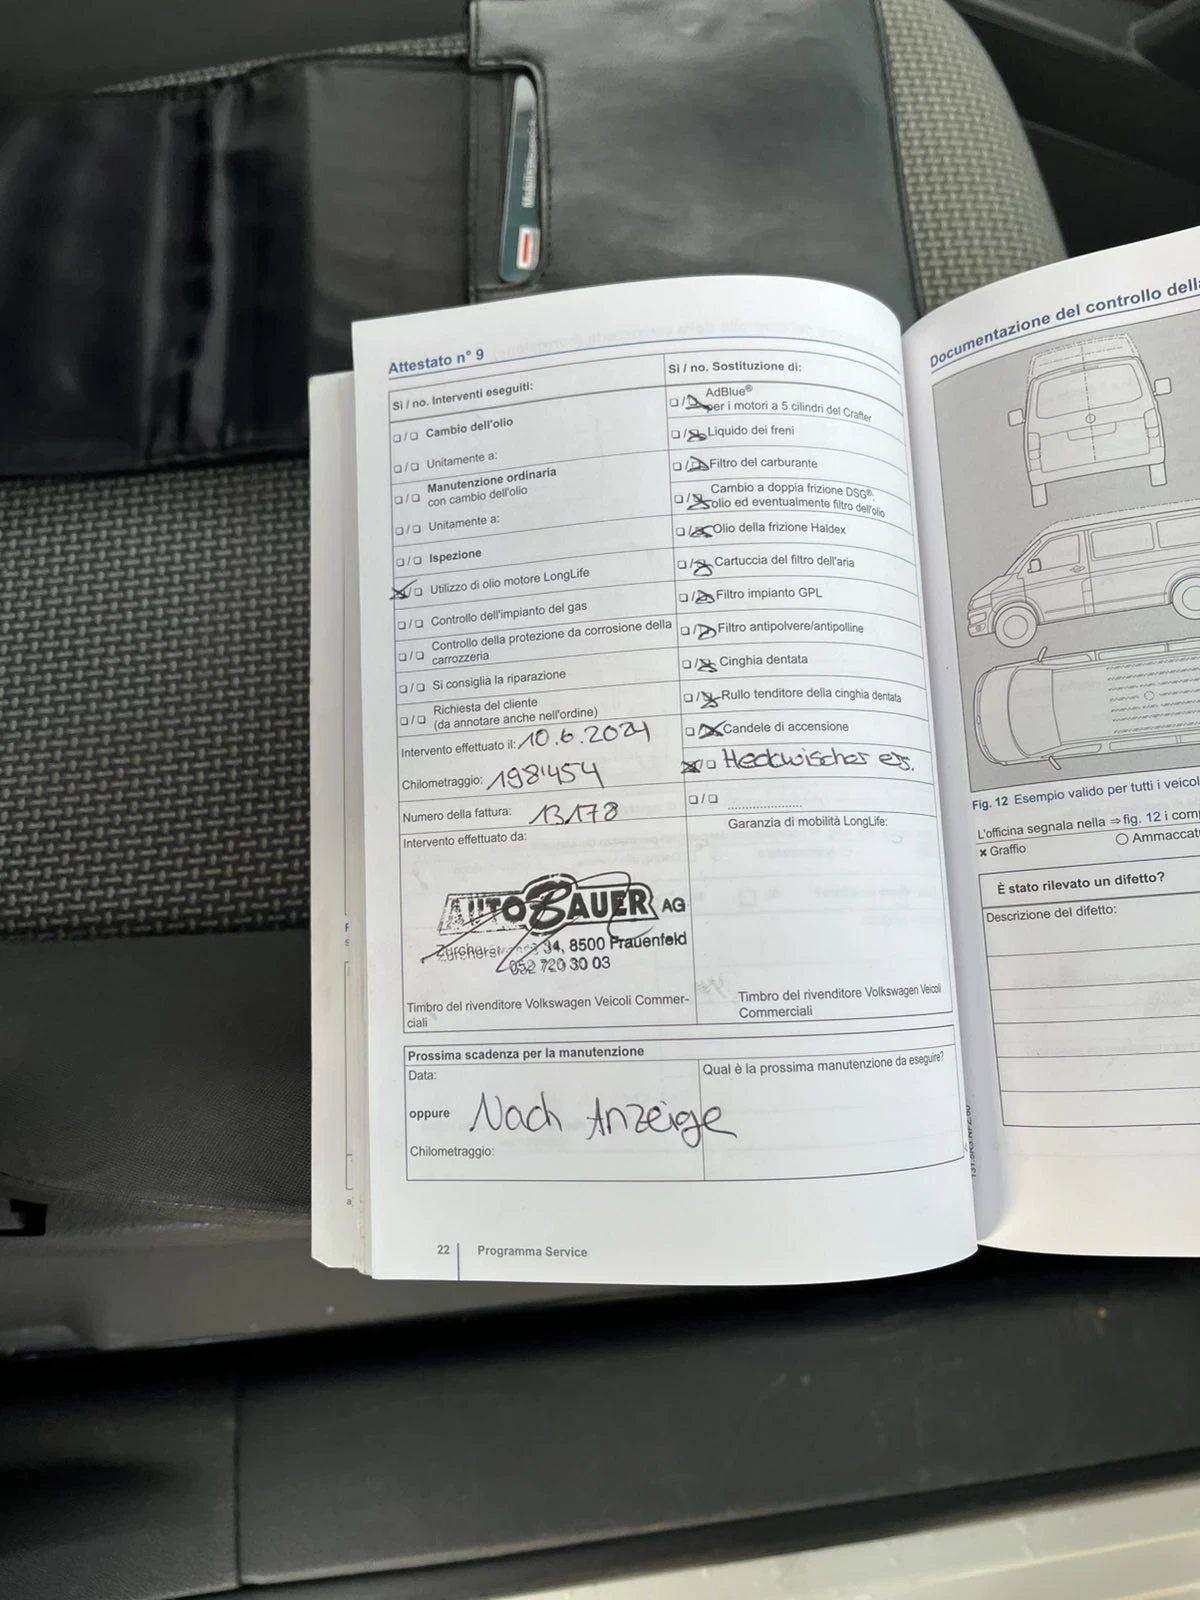 Attestato n° 9
Sì / no. Interventi eseguiti:
❏/❏ Cambio dell'olio
❏/❏ Unitamente a:
❏/❏ Manutenzione ordinaria
con cambio dell'olio
❏/❏ Unitamente a:
❏/❏ Ispezione
❏/❏ Utilizzo di olio motore LongLife
❏/❏ Controllo dell'impianto del gas
❏/❏ Controllo della protezione da corrosione della
carrozzeria
❏/❏ Si consiglia la riparazione
❏/❏ Richiesta del cliente
(da annotare anche nell'ordine)
Intervento effettuato il: 10.6.2024
Chilometraggio: 198'454
Numero della fattura: 13178
Intervento effettuato da:
AUTO BAUER AG
34, 8500 Frauenfeld
052 720 30 03
Timbro del rivenditore Volkswagen Veicoli Commer-
ciali
Sì / no. Sostituzione di:
❏/❏ AdBlue®
per i motori a 5 cilindri del Crafter
❏/❏ Liquido dei freni
❏/❏ Filtro del carburante
❏/❏ Cambio a doppia frizione DSG®:
olio ed eventualmente filtro dell'olio
❏/❏ Olio della frizione Haldex
❏/❏ Cartuccia del filtro dell'aria
❏/❏ Filtro impianto GPL
❏/❏ Filtro antipolvere/antipolline
❏/❏ Cinghia dentata
❏/❏ Rullo tenditore della cinghia dentata
❏/❏ Candele di accensione
❏/❏ Heckwischer ers.
❏/❏ ....................
Garanzia di mobilità LongLife:
Timbro del rivenditore Volkswagen Veicoli
Commerciali
Prossima scadenza per la manutenzione
Data:
oppure Nach Anzeige
Chilometraggio:
Qual è la prossima manutenzione da eseguire?
22 Programma Service
Documentazione del controllo della
Fig. 12 Esempio valido per tutti i veicol
L'officina segnala nella ⇒ fig. 12 i comp
✗ Graffio
○ Ammaccat
È stato rilevato un difetto?
Descrizione del difetto: